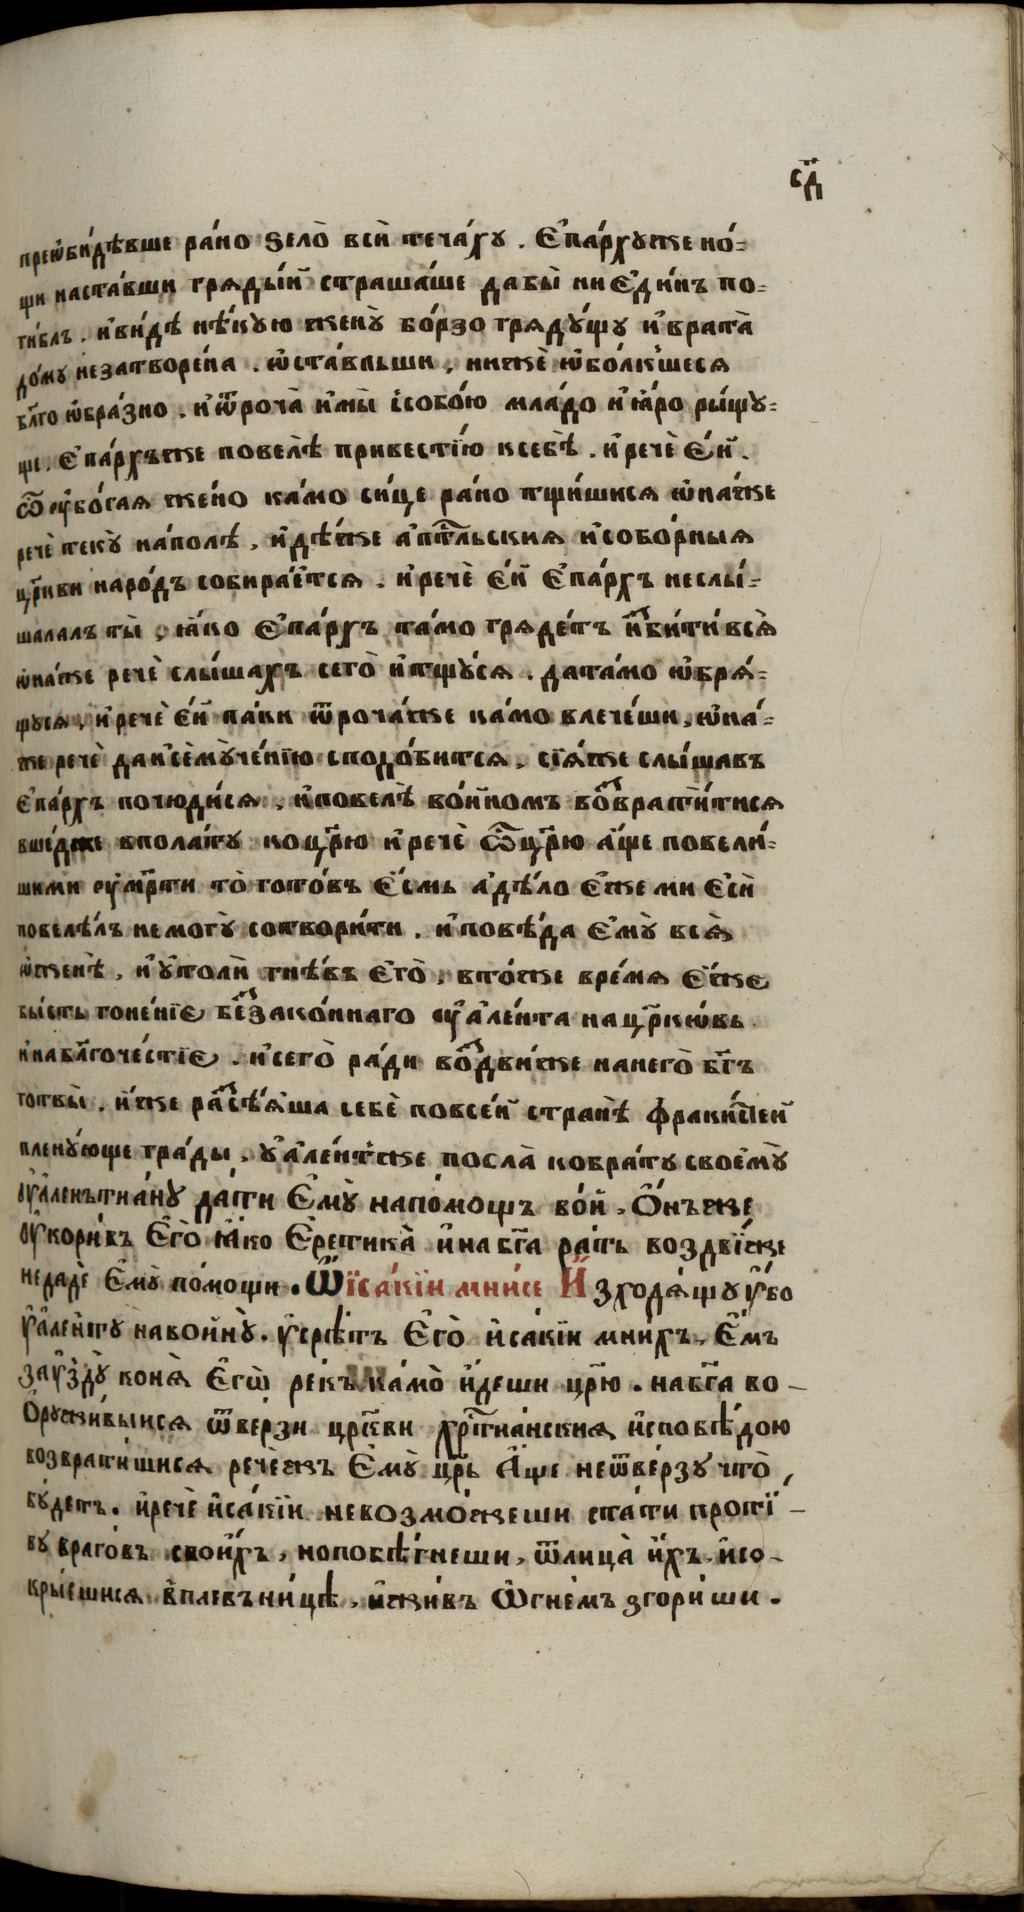 с҃д
преѡби́дѣвше ра́но ѕело̀ вси́ теча́хꙋ . Е҆па́рхꙋже но́=
щи наста́вши грѧды́й страша́ше дабы̀ ниЕ҆ди́нъ по=
ги́блъ . и҆ви́дѣ нѣ́кую женꙋ̀ бо́рзо грѧдꙋ́щꙋ и҆врата̀
до́мꙋ незатворе́на . ѡ҆ста́вльши , нижѐ ѡ҆бо́лкшесѧ
бл҃го ѡ҆бра́зно . и҆ѿроча̀ и҆мы́ ссобо́ю мла́до и҆ꙗ҆́ро ры́щꙋ=
ще . Е҆па́рхъже повелѣ̀ привестїю̀ ксебѣ̀ . и҆речѐ Е҆́й .
Ѽ ᲂу҆бо́гаѧ же́но ка́мо си́це ра́но тщи́шисѧ ѡ҆на́же
речѐ текꙋ̀ напо́лѣ , идѣ́же а҆пⷭ҇тльскиѧ и҆собо́рныѧ
цр҃кви наро́дъ собира́етсѧ . и҆речѐ Е҆́й Е҆па́рхъ неслы́=
шалалъ ты̀ , ꙗ҆́ко Е҆па́рхъ та́мо грѧде́тъ и҆зби́тивсѧ̀
ѡ҆на́же речѐ слы́шахъ сего̀ и҆тщꙋ́сѧ . дата́мо ѡ҆брѧ́=
щꙋсѧ , и҆речѐ Е҆́й па́ки ѿроча́же ка́мо влече́ши , ѡ҆на́=
же речѐ даисѐмꙋче́нїю сподо́битсѧ , сїѧ́же слы́шавъ
Е҆па́рхъ почюди́сѧ , и҆повелѣ̀ во́иномъ возврати́тисѧ
вше́дже вполатꙋ коцр҃ю и҆речѐ Ѽцр҃ю а҆́ще повели́=
шими ᲂу҆мр҃ти то̀ гото́въ Е҆́смь а҆дѣ́ло Е҆́же ми Е҆сѝ
повелѣ́лъ немогꙋ̀ сотвори́ти . и҆повѣ́да Е҆мꙋ̀ всѧ̀
ѡ҆женѣ̀ , и҆ᲂу҆толѝ гнѣ́въ Е҆гѡ̀ , вто́же вре́мѧ Е҆́же
бы́сть гоне́нїе беззако́ннаго ᲂу҆а҆ле́нта нацр҃ковь
и҆набл҃гоче́стїе . и҆сего̀ ра́ди воздви́же нанего̀ бг҃ъ
го́твы . и҆́же разсѣ́ѧша себѐ повсе́й странѣ̀ фраки́йстей
пленꙋ́юще гра́ды . ᲂу҆а҆ле́нтже посла̀ кобра́тꙋ своемꙋ̀
ᲂу҆аленътиа́нꙋ да́ти Е҆мꙋ̀ напо́мощъ во́й , О҆́нъже
ᲂу҆кори́въ Е҆го̀ ꙗ҆́ко Е҆ретика̀ и҆набг҃а ра́тъ воздви́же
недадѐ Е҆мꙋ̀ по́мощи . Ѽїса́кїи мни́се И҆зходѧ́щꙋ ᲂу҆бо
ᲂу҆але́нтꙋ навойнꙋ̀ . ᲂу҆срѣ́тъ Е҆го̀ и҆са́кїи мни́хъ . Е҆́мъ
заᲂу҆здꙋ̀ конѧ̀ Е҆гѡ̀ ре́къ ка́мо и҆́деши цр҃ю . набг҃а во-
Ѻрꙋжи́выисѧ ѿве́рзи цр҃кви хрⷭ҇тиа́нскиѧ и҆споᲂбѣ́дою
возврати́шисѧ рече́жъ Е҆мꙋ̀ цр҃ь А҆́ще неѿве́рзꙋ что̀ ,
бꙋ́детъ . и҆речѐ и҆са́кїи невозмо́жеши ста́ти проти-
вꙋ враго́въ свои́хъ , нопобѣ́гнеши , ѿлица̀ и҆́хъ , и҆со-
кры́ешисѧ вплевъни́цѣ , и҆жи́въ Ѻ҆гне́мъ згори́ши .